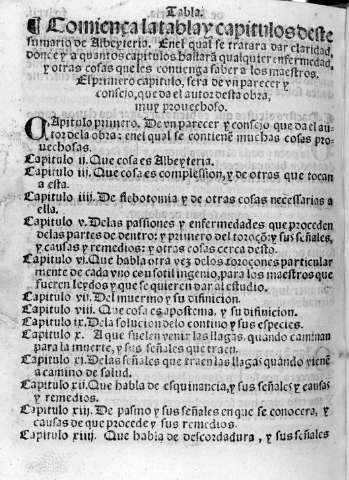 Tabla.
¶ Comiença la tabla y capitulos deste
sumario de Albeyteria. En el qual se tratara dar claridad,
donde y a quantos capitulos hallará qualquier enfermedad,
y otras cosas que les conuenga saber a los maestros.
El primero capitulo, sera de vn parecer y
consejo, que da el autor desta obra,
muy prouechoso.
CApitulo primero. De vn parecer y consejo que da el au
tor de la obra: en el qual se contienẽ muchas cosas pro
uechosas.
Capitulo ij. Que cosa es Albeyteria.
Capitulo iij. Que cosa es complession, y de otras que tocan
a esta.
Capitulo iiij. De flebotomia y de otras cosas necessarias a
ella.
Capitulo v. De las passiones y enfermedades que proceden
de las partes de dentro: y primero del toroçõ: y sus señales,
y causas y remedios: y otras cosas cerca desto.
Capitulo vj. Que habla otra vez de los toroçones particular
mente de cada vno con sotil ingenio, para los maestros que
fueren leydos y que se quieren dar al estudio.
Capitulo vij. Del muermo y su difinicion.
Capitulo viij. Que cosa es apostema, y su difinicion.
Capitulo ix. De la solucion de lo contino y sus especies.
Capitulo x. A que suelen venir las llagas, quando caminan
para la muerte, y sus señales que traen.
Capitulo xj. De las señales que traen las llagas quando vienẽ
a camino de salud.
Capitulo xij. Que habla de esquinancia, y sus señales y causas
y remedios.
Capitulo xiij. De pasmo y sus señales en que se conocera, y
causas de que procede y sus remedios.
Capitulo xiiij. Que habla de descordadura, y sus señales